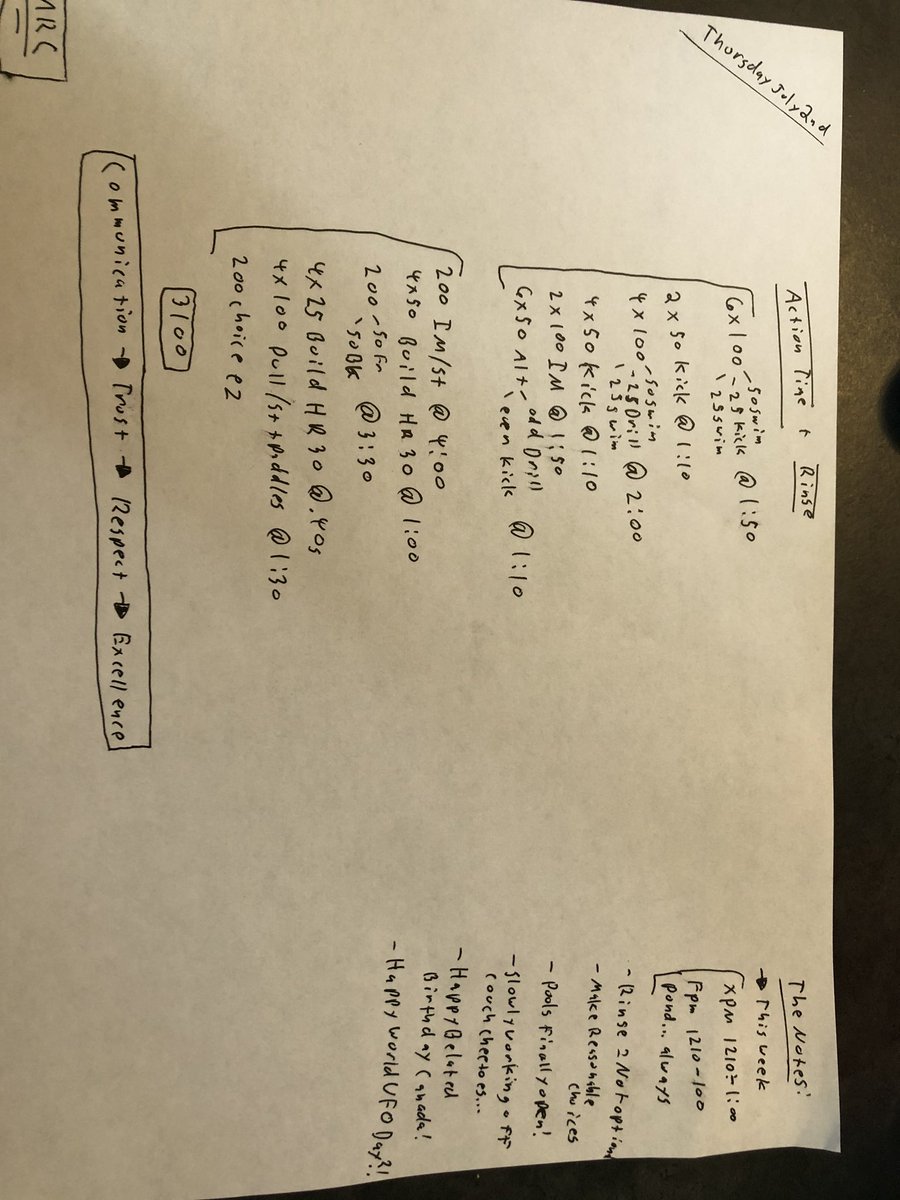 Thursday July 2nd
Action Time + Rinse
6x100 - 50 swim
- 25 kick @ 1:50
\ 25 swim
2x50 kick @ 1:10
4x100 - 50 swim
- 25 Drill @ 2:00
\ 25 swim
4x50 kick @ 1:10
2x100 IM @ 1:50
6x50 Alt - odd Drill @ 1:10
\ even kick
200 IM/st @ 4:00
4x50 Build HR 30 @ 1:00
200 - 50 Fr @ 3:30
\ 50 BK
4x25 Build HR 30 @ .40s
4x100 Pull/st + Paddles @ 1:30
200 choice ez
3100
Communication → Trust → Respect → Excellence
The Notes:
→ This week
XPM 1210-1:00
Fpm 1210-100
Pond... always
- Rinse = Not option
- Make Reasonable
choices
- Pools finally open!
- Slowly working off
couch cheetoes...
- Happy Belated
Birthday Canada!
- Happy World UFO Day?!!